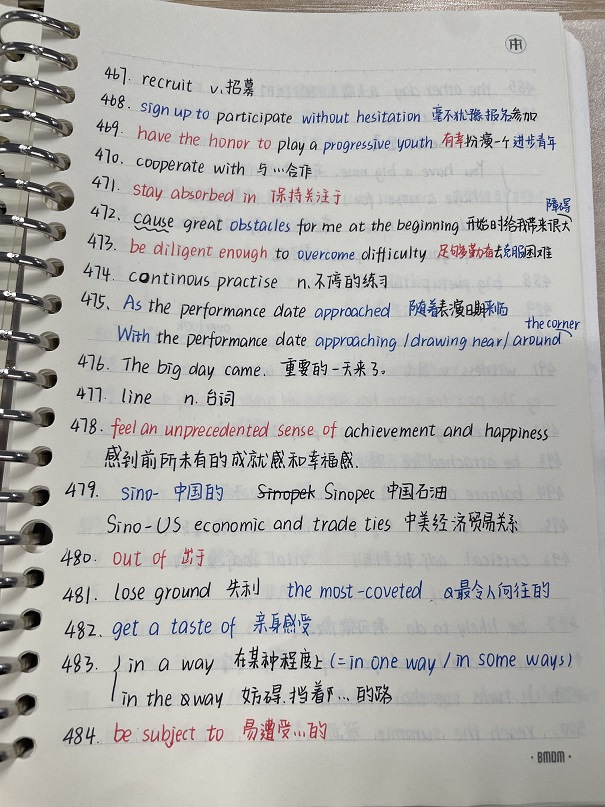 467. recruit v.招募
468. sign up to participate without hesitation 毫不犹豫报名参加
469. have the honor to play a progressive youth 有幸扮演一个进步青年
470. cooperate with 与…合作
471. stay absorbed in 保持关注于
障碍
472. cause great obstacles for me at the beginning 开始时给我带来很大
473. be diligent enough to overcome difficulty 足够勤奋去克服困难
474. continous practise n.不停的练习
475. As the performance date approached 随着表演日期来临
the corner
With the performance date approaching /drawing near/ around
476. The big day came. 重要的一天来了。
477. line n. 台词
478. feel an unprecedented sense of achievement and happiness
感到前所未有的成就感和幸福感.
479. sino- 中国的 Sinopek Sinopec 中国石油
Sino-US economic and trade ties 中美经济贸易关系
480. out of 出于
481. lose ground 失利 the most-coveted a最令人向往的
482. get a taste of 亲身感受
483. in a way 在某种程度上 (= in one way / in some ways)
in the way 妨碍.挡着了…的路
484. be subject to 易遭受…的
BMOM